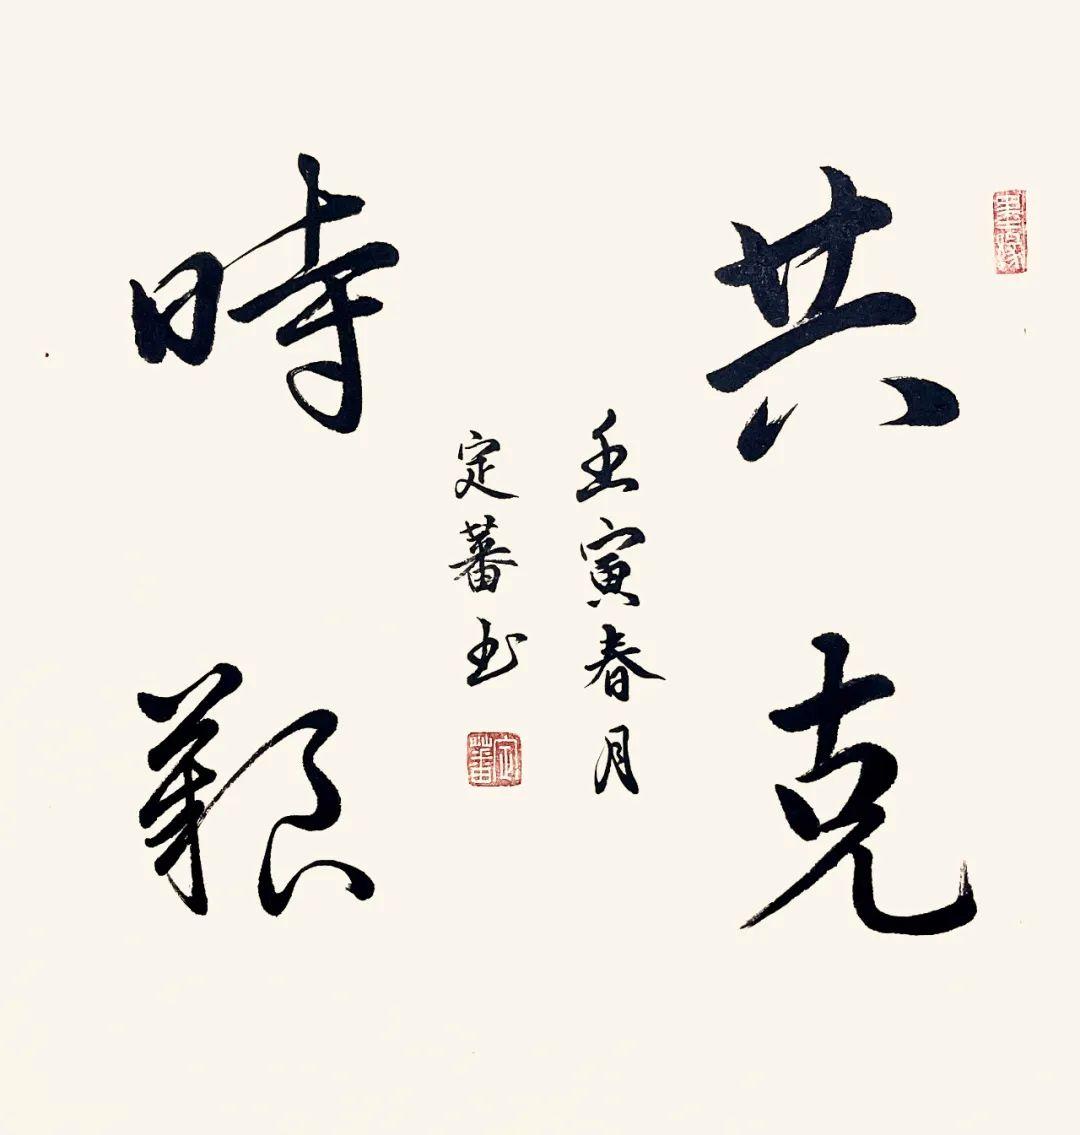 共克
時艱
壬寅春月
定蕃书
定蕃